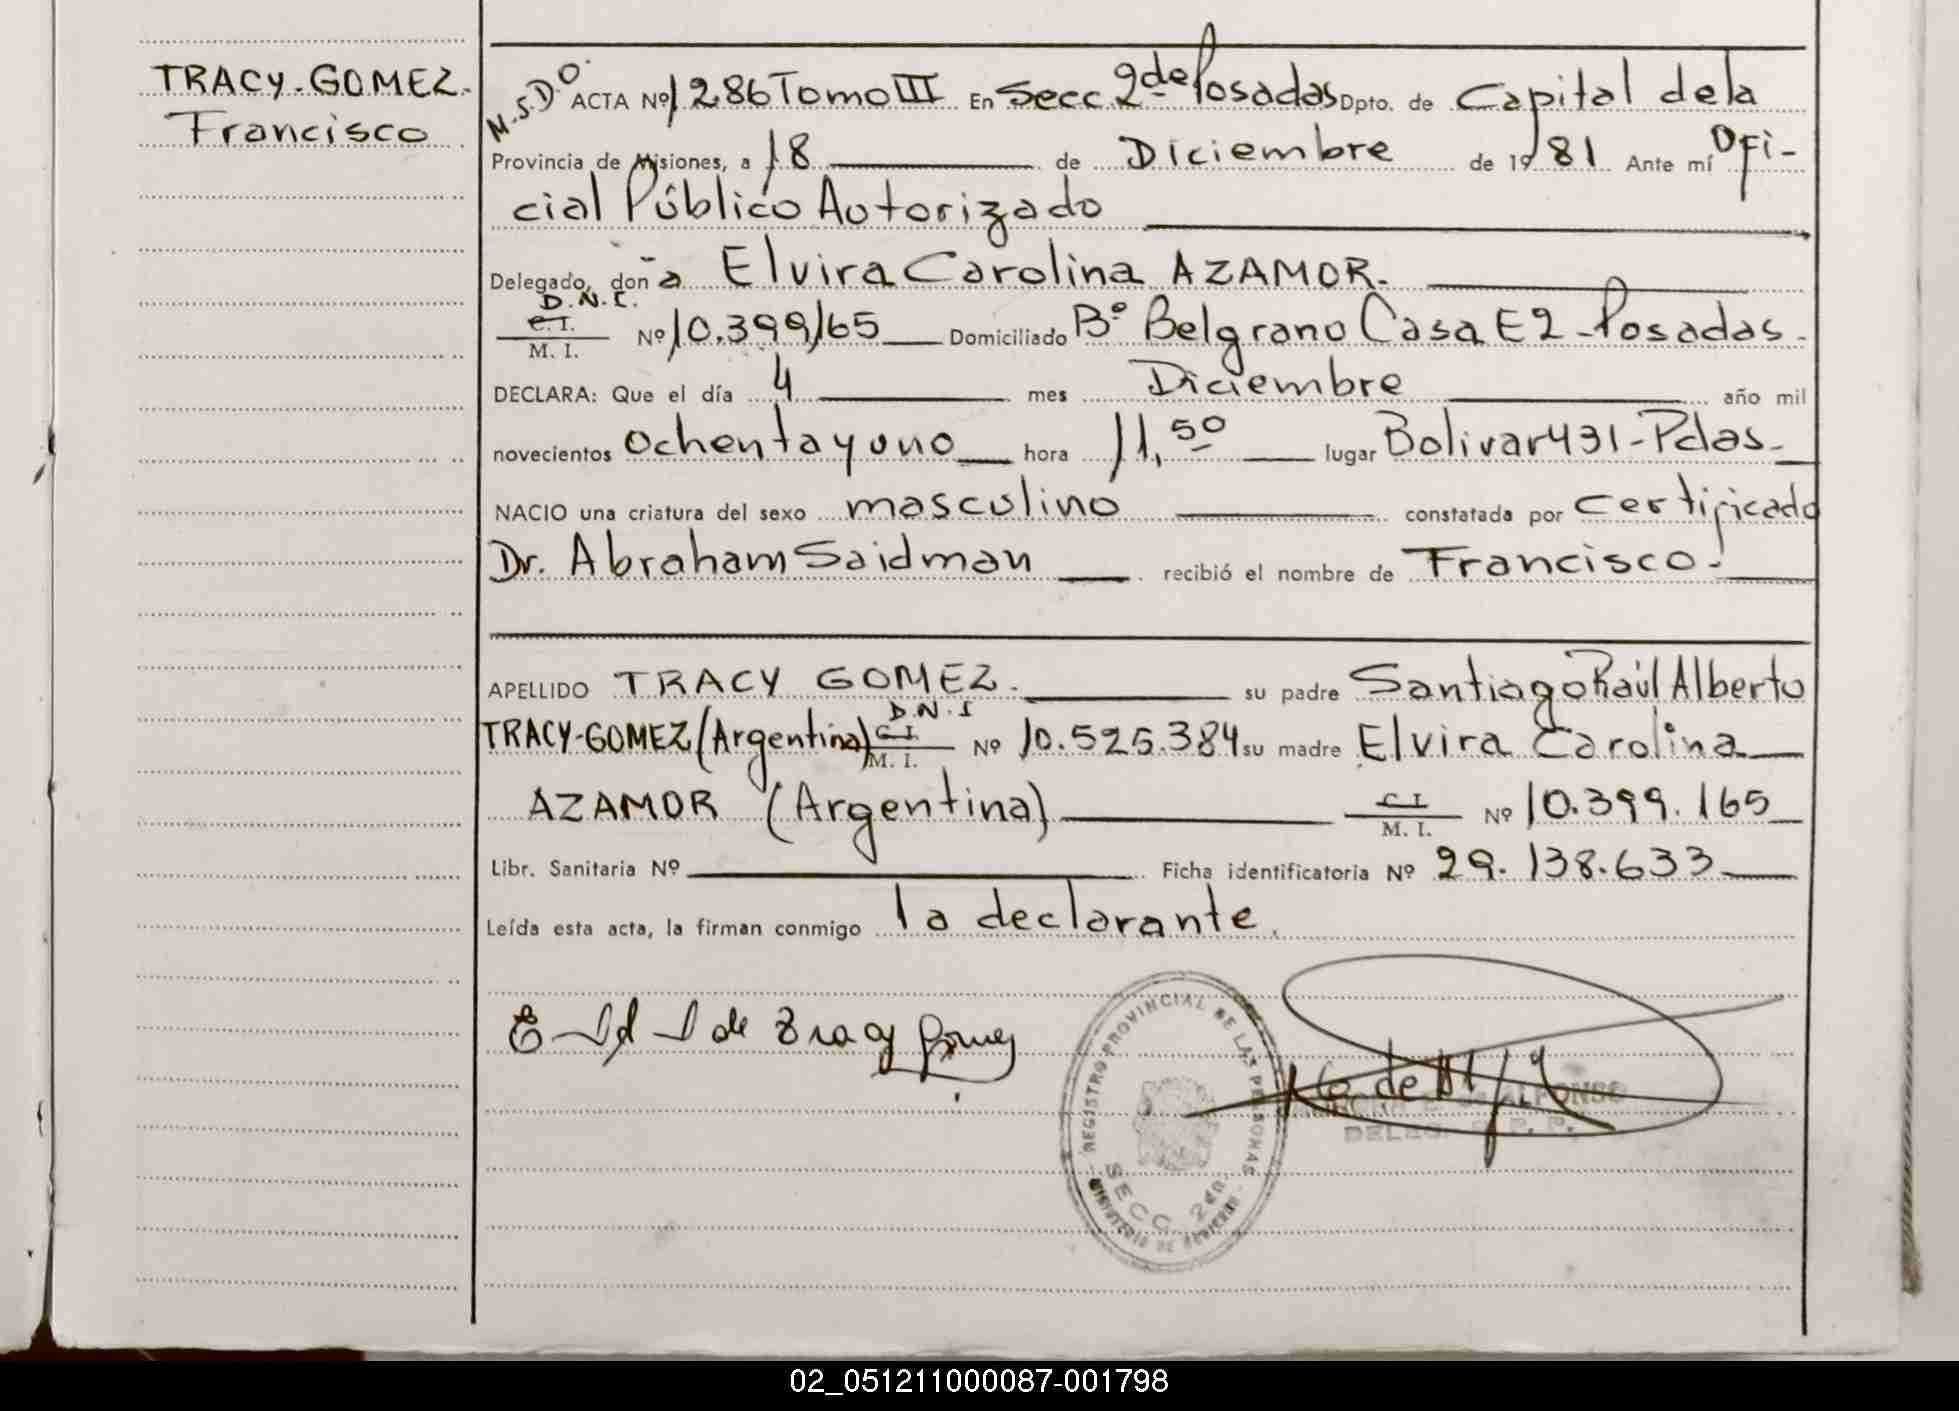 TRACY-GOMEZ.
Francisco
M.S.D.O. ACTA Nº 1286 Tomo III En Secc. 2da Posadas Dpto. de Capital dela
Provincia de Misiones, a 18 de Diciembre de 1981 Ante mí Ofi-
cial Público Autorizado
Delegado, doña Elvira Carolina AZAMOR.
D.N.I.
C.I. / M. I. Nº 10.399/65 Domiciliado Bº Belgrano Casa E2-Posadas-
DECLARA: Que el día 4 mes Diciembre año mil
novecientos ochentayuno hora 11,50 lugar Bolivar431-Pdas-
NACIO una criatura del sexo masculino constatada por certificado
Dr. Abraham Saidman recibió el nombre de Francisco-
APELLIDO TRACY GOMEZ. su padre Santiago Raúl Alberto
D.N.I
TRACY-GOMEZ (Argentina) C.I. / M. I. Nº 10.525.384 su madre Elvira Carolina
AZAMOR (Argentina) C I / M. I. Nº 10.399.165
Libr. Sanitaria Nº Ficha identificatoria Nº 29.138.633
Leída esta acta, la firman conmigo la declarante.
de Tracy Gomez
REGISTRO PROVINCIAL DE LAS PERSONAS
SECC. 2da.
MINISTERIO DE GOBIERNO
ALFONSO
DELEG. R. P. P.
02_051211000087-001798